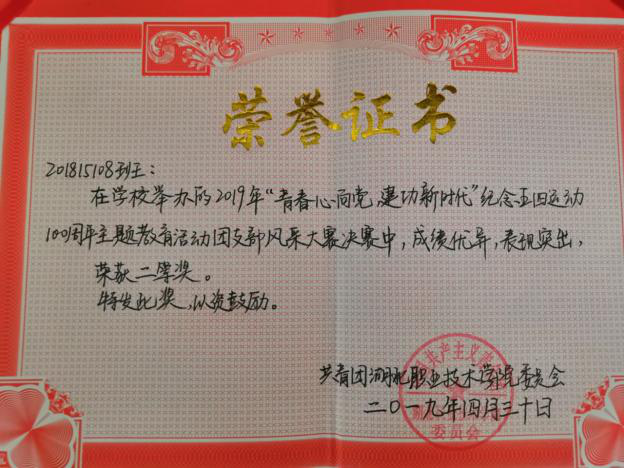 荣誉证书
201815108班王：
在学校举办的2019年“青春心向党，建功新时代”纪念五四运动
100周年主题教育活动团支部风采大赛决赛中，成绩优异，表现突出，
荣获二等奖。
特发此奖，以资鼓励。
共青团湖北职业技术学院委员会
二〇一九年四月三十日
委员会